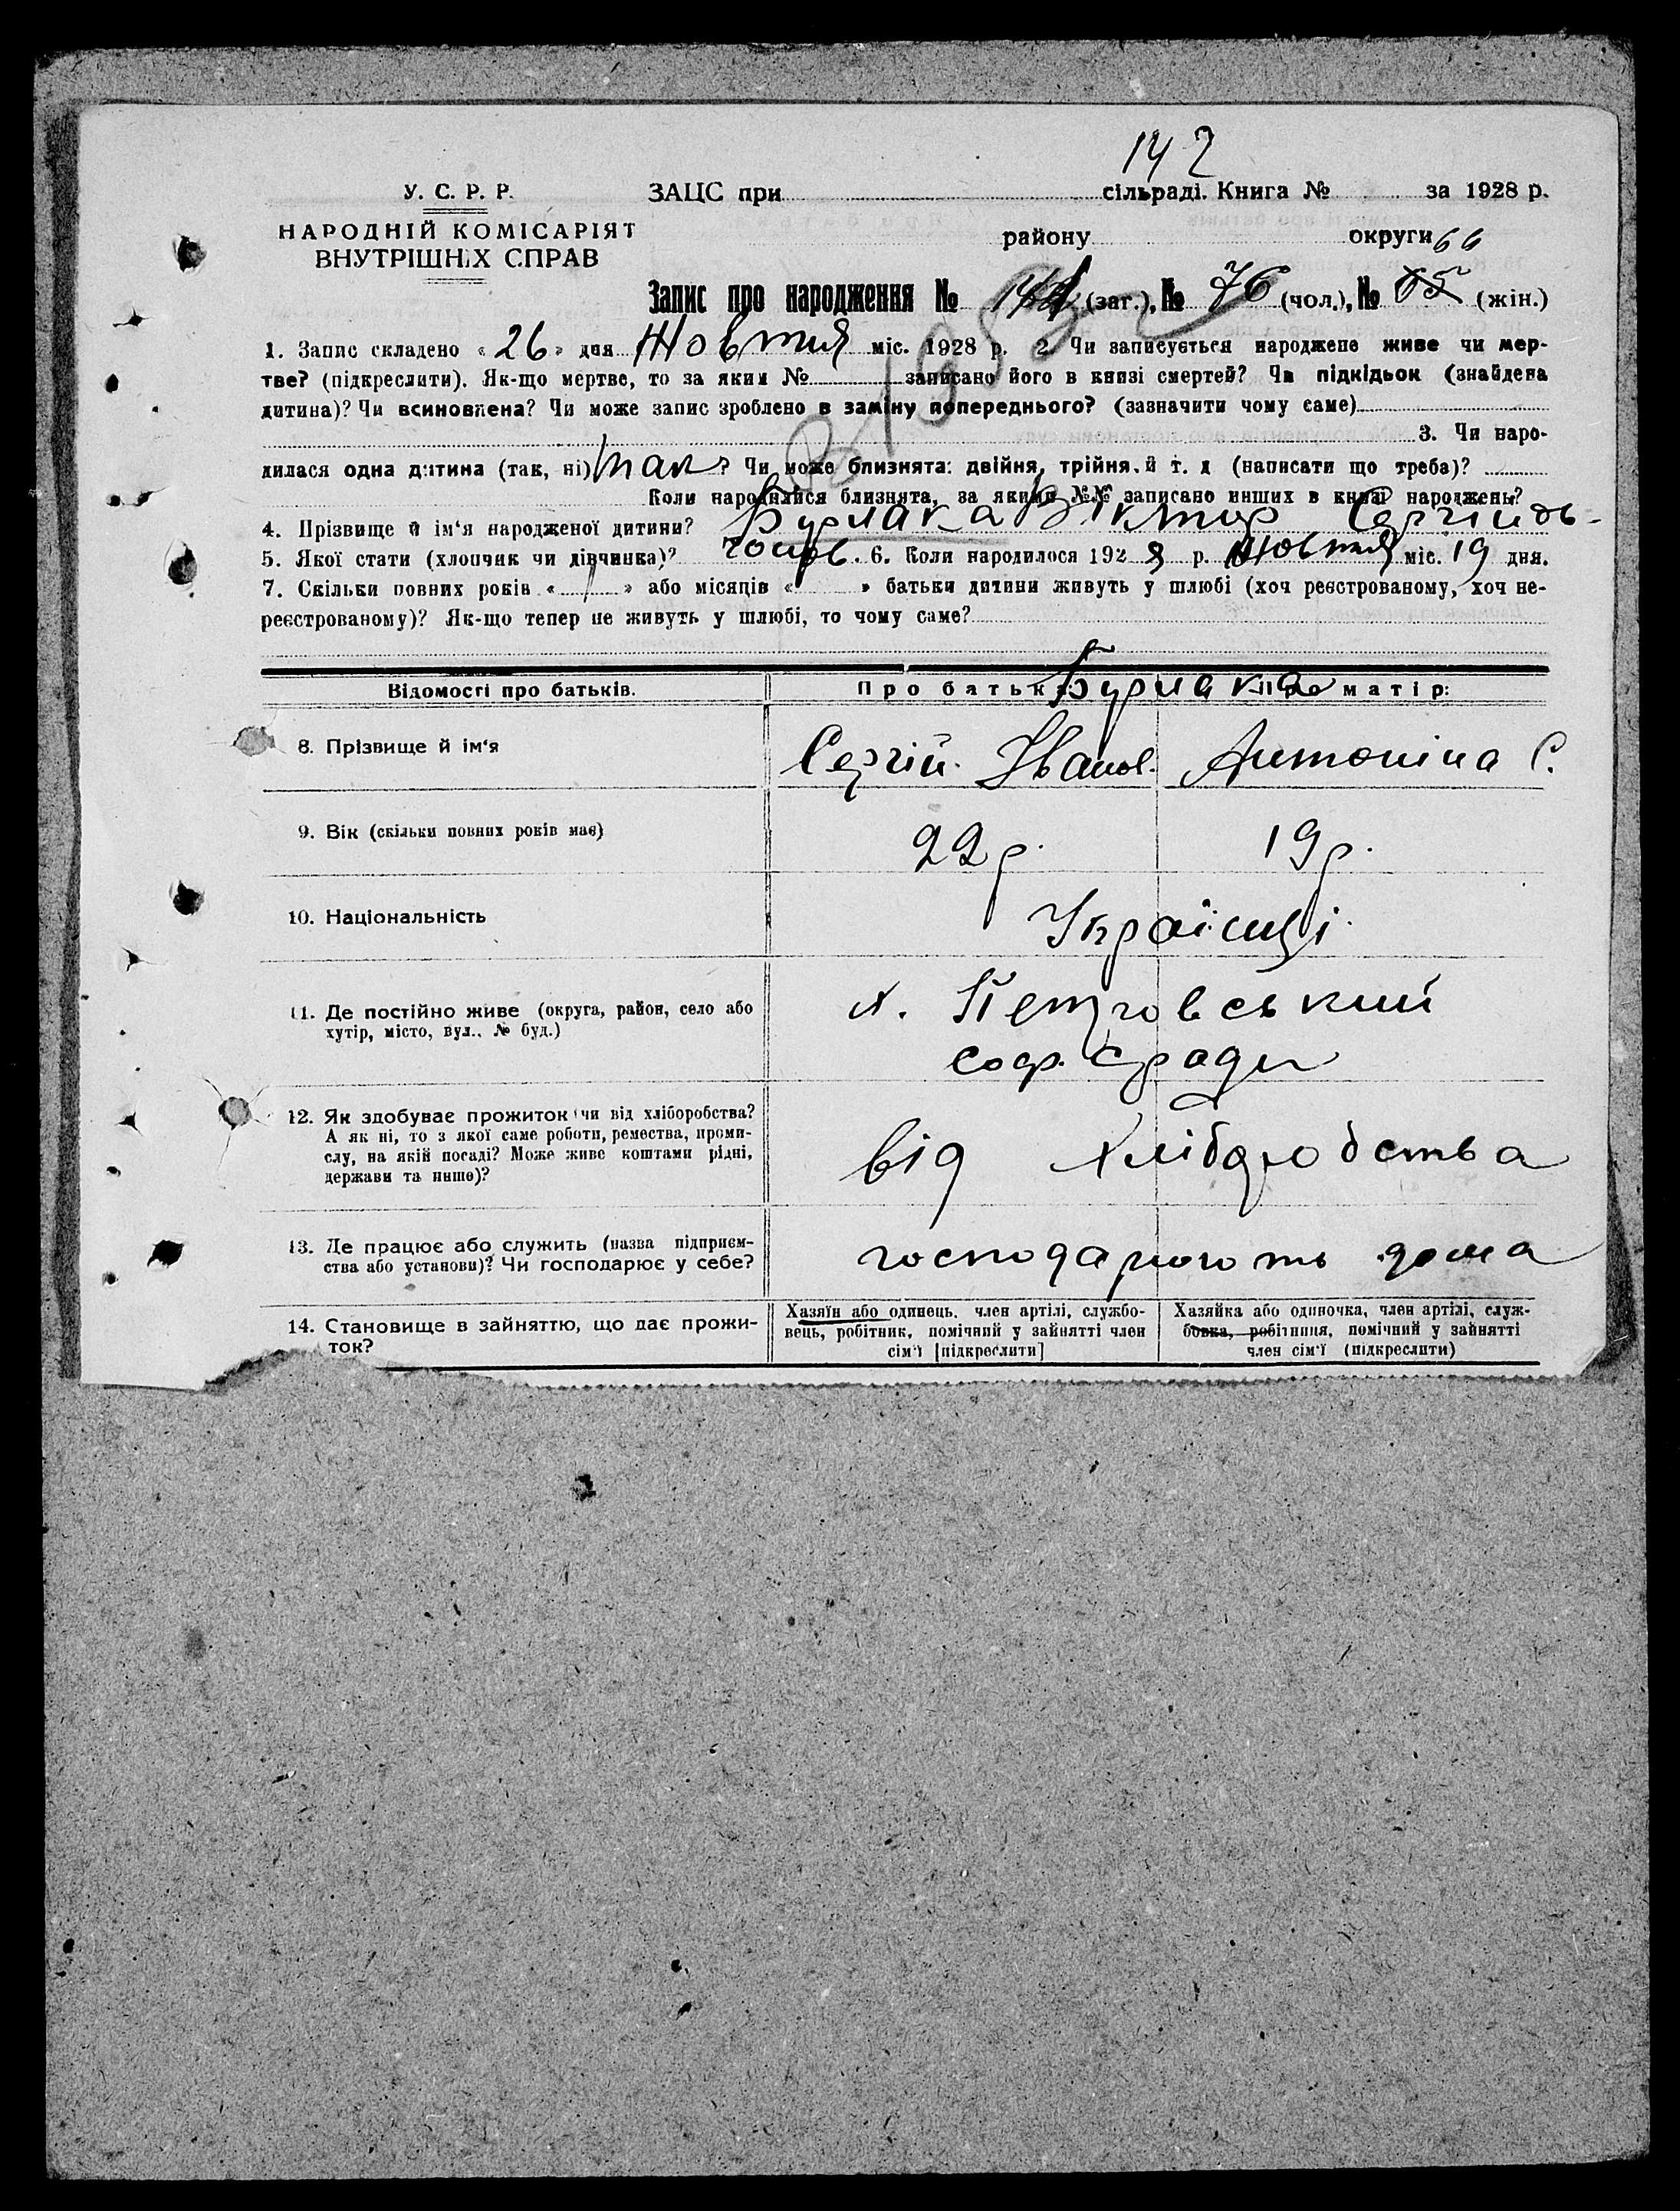 142
У. С. Р. Р. ЗАЦС при сільраді. Книга № за 1928 р.
НАРОДНІЙ КОМІСАРІЯТ
ВНУТРІШНІХ СПРАВ
району округи 66
Запис про народження № (заг.), № 76 (чол.), № 65 (жін.)
1. Запис складено « 26 » дня Жовтня міс. 1928 р. 2. Чи записується народжене живе чи мер-
тве? (підкреслити). Як-що мертве, то за яким № записано його в книзі смертей? Чи підкідьок (знайдена
дитина)? Чи всиновлена? Чи може запис зроблено в заміну попереднього? (зазначити чому саме)
3. Чи наро-
дилася одна дитина (так, ні) так? Чи може близнята: двійня, трійня й т. д (написати що треба)?
Коли народилися близнята, за якими №№ записано инших в книзі народжень?
4. Прізвище й ім‘я народженої дитини? Бурлака Віктор
5. Якої стати (хлопчик чи дівчинка)? 6. Коли народилося 1928 р. Жовтня міс. 19 дня.
7. Скільки повних років « » або місяців « » батьки дитини живуть у шлюбі (хоч реєстрованому, хоч не-
реєстрованому)? Як-що тепер не живуть у шлюбі, то чому саме?
Відомості про батьків. Про батька: Про матір:
Бурлака
8. Прізвище й ім‘я Сергій Іванов. Антоніна С.
9. Вік (скільки повних років має) 22 р. 19 р.
10. Національність Українці
11. Де постійно живе (округа, район, село або
хутір, місто, вул., № буд.)
х. Петровський
соф. сради
12. Як здобуває прожиток (чи від хліборобства?
А як ні, то з якої саме роботи, ремества, проми-
слу, на якій посаді? Може живе коштами рідні,
держави та инше)?
від хліборобства
13. Де працює або служить (назва підприєм-
ства або установи)? Чи господарює у себе?
господарюють дома
14. Становище в зайняттю, що дає прожи-
ток?
Хазяїн або одинець, член артілі, службо-
вець, робітник, помічний у зайнятті член
сім‘ї [підкреслити]
Хазяйка або одиночка, член артілі, служ-
бовка, робітниця, помічний у зайнятті
член сім‘ї (підкреслити)